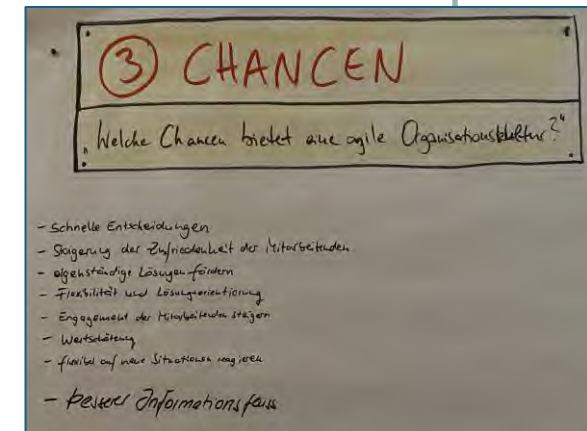 ③ CHANCEN
„Welche Chancen bietet eine agile Organisationskultur?"
- Schnelle Entscheidungen
- Steigerung der Zufriedenheit der Mitarbeitenden
- eigenständige Lösungen fördern
- Flexibilität und Lösungsorientierung
- Engagement der Mitarbeitenden steigern
- Wertschätzung
- flexibel auf neue Situationen reagieren
- besserer Informationsfluss